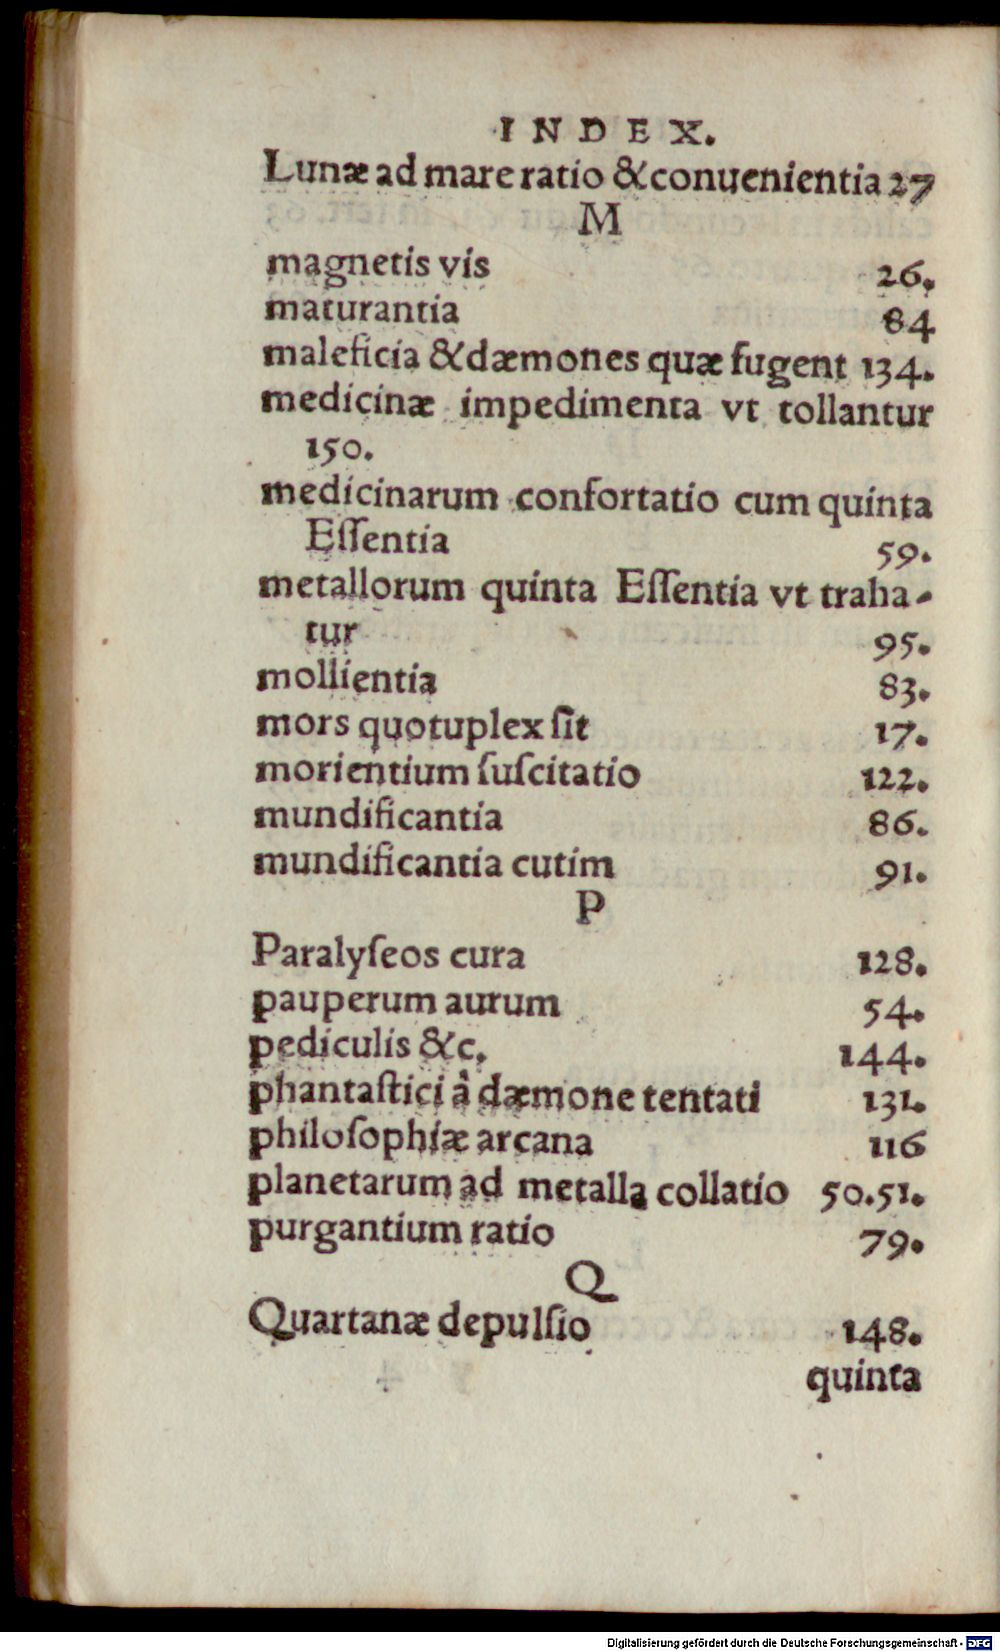 INDEX.
Lunæ ad mare ratio & conuenientia 27
M
magnetis vis 26.
maturantia 84
maleficia & dæmones quæ fugent 134.
medicinæ impedimenta vt tollantur
150.
medicinarum confortatio cum quinta
Eſſentia 59.
metallorum quinta Eſſentia vt traha-
tur 95.
mollientia 83.
mors quotuplex ſit 17.
morientium ſuſcitatio 122.
mundificantia 86.
mundificantia cutim 91.
P
Paralyſeos cura 128.
pauperum aurum 54.
pediculis &c. 144.
phantaſtici à dæmone tentati 131.
philoſophiæ arcana 116
planetarum ad metalla collatio 50.51.
purgantium ratio 79.
Q
Quartanæ depulſio 148.
quinta
Digitalisierung gefördert durch die Deutsche Forschungsgemeinschaft - DFG